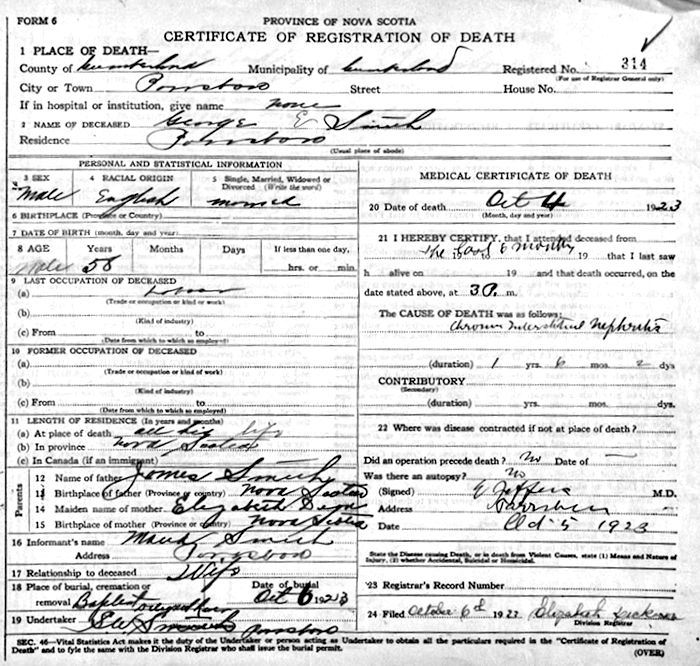 FORM 6
PROVINCE OF NOVA SCOTIA
CERTIFICATE OF REGISTRATION OF DEATH
1 PLACE OF DEATH—
County of Cumberland Municipality of Cumberland Registered No. 314
(For use of Registrar General only)
City or Town Parrsboro Street House No.
If in hospital or institution, give name none
2 NAME OF DECEASED George E Smith
Residence Parrsboro
(Usual place of abode)
PERSONAL AND STATISTICAL INFORMATION
3 SEX 4 RACIAL ORIGIN 5 Single, Married, Widowed or Divorced (Write the word)
Male English married
6 BIRTHPLACE (Province or Country)
7 DATE OF BIRTH (month, day and year)
8 AGE Years Months Days If less than one day,
Male 58 hrs. or min
9 LAST OCCUPATION OF DECEASED
(a)
(Trade or occupation or kind or work)
(b)
(Kind of industry)
(c) From to
(Date from which to which so employed)
10 FORMER OCCUPATION OF DECEASED
(a)
(Trade or occupation or kind of work)
(b)
(Kind of industry)
(c) From to
(Date from which to which so employed)
11 LENGTH OF RESIDENCE (In years and months)
(a) At place of death all his life
(b) In province Nova Scotia
(c) In Canada (if an immigrant)
Parents
12 Name of father James Smith
13 Birthplace of father (Province or country) Nova Scotia
14 Maiden name of mother Elizabeth
15 Birthplace of mother (Province or country) Nova Scotia
16 Informant's name Maud Smith
Address Parrsboro
17 Relationship to deceased Wife
18 Place of burial, cremation or removal Baptist Date of burial Oct 6 1923
19 Undertaker Parrsboro
MEDICAL CERTIFICATE OF DEATH
20 Date of death Oct 4 1923
(Month, day and year)
21 I HEREBY CERTIFY, that I attended deceased from
the last 6 months 19 that I last saw
h alive on 19 and that death occurred, on the
date stated above, at 3 P. m.
The CAUSE OF DEATH was as follows:
Chronic Interstitial Nephritis
(duration) 1 yrs. 6 mos. 2 dys
CONTRIBUTORY
(Secondary)
(duration) yrs. mos. dys
22 Where was disease contracted if not at place of death?
Did an operation precede death? No Date of —
Was there an autopsy? No
(Signed) M.D.
Address Parrsboro
Date Oct 5 1923
State the Disease causing Death, or in death from Violent Causes, state (1) Means and Nature of Injury, (2) whether Accidental, Suicidal or Homicidal.
23 Registrar's Record Number
24 Filed October 6th 1923 Elizabeth
Division Registrar
SEC. 46—Vital Statistics Act makes it the duty of the Undertaker or person acting as Undertaker to obtain all the particulars required in the "Certificate of Registration of
Death" and to fyle the same with the Division Registrar who shall issue the burial permit. (OVER)